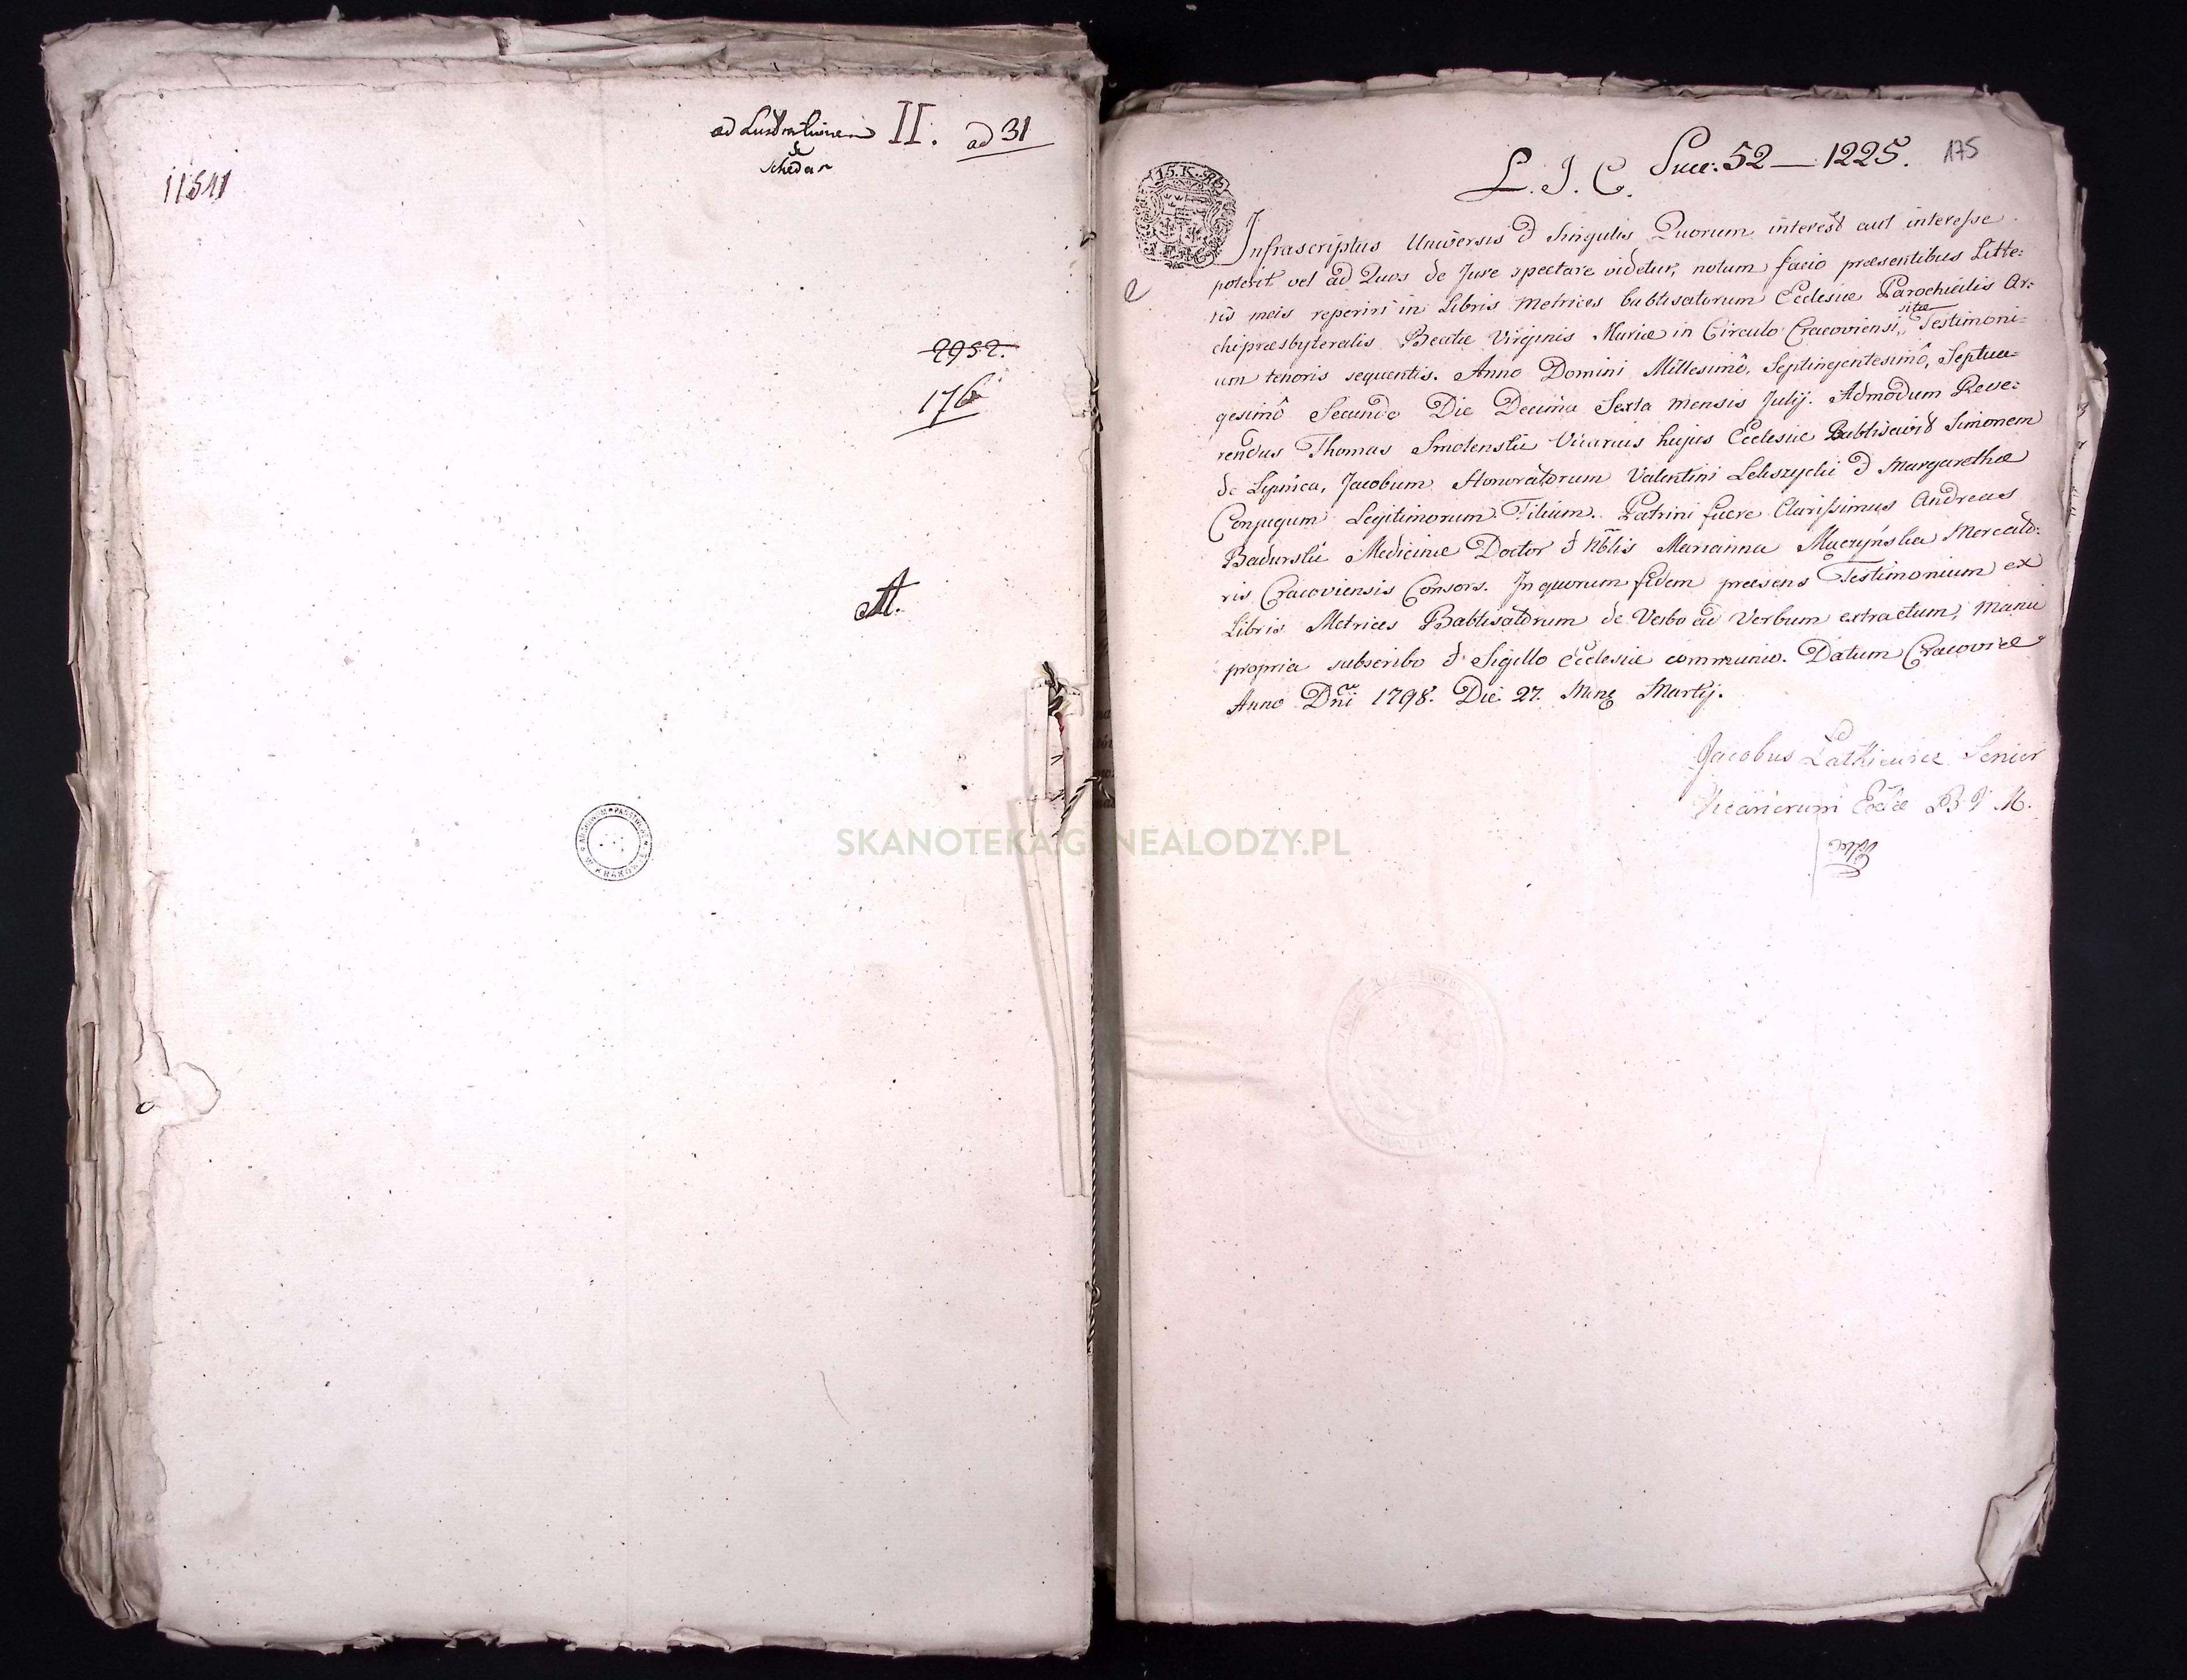 ad Lustrationem II. ad 31
&
schedar
11511
2952.
176
A.
ARCHIWUM PAŃSTWOWE W KRAKOWIE
SKANOTEKA.GENEALODZY.PL
Succ: 52 — 1225. 175
L. J. C.
15. K.
Infrascriptus Universis & Singulis Quorum interest aut interesse
poterit vel ad Quos de Jure spectare videtur, notum facio præsentibus Litte:
ris meis reperiri in Libris Metrices babtisatorum Ecclesiæ Parochialis Ar:
chipræsbyteralis Beatæ Virginis Mariæ in Circulo Cracoviensi, sitæ Testimoni:
um tenoris sequentis. Anno Domini Millesimô, Septingentesimô, Septua=
gesimô Secundo Die Decima Sexta mensis Julij. Admodum Reve:
rendus Thomas Smolenski Vicarius hujus Ecclesiæ Babtisavit Simonem
de Lipnica, Jacobum Honoratorum Valentini Lekszycki & Margarethæ
Conjugum Legitimorum Filium. Patrini fuere Clarissimus Andreas
Badurski Medicinæ Doctor & Nblis Marianna Mączyńska Mercato:
ris Cracoviensis Consors. In quorum fidem præsens Testimonium ex
Libris Metrices Babtisatorum de Verbo ad Verbum extractum, manu
propria subscribo & Sigillo Ecclesiæ communio. Datum Cracoviæ
Anno Dni 1798. Die 27. Mens Martij.
Jacobus Senior
Vicariorum Eccle B V M.